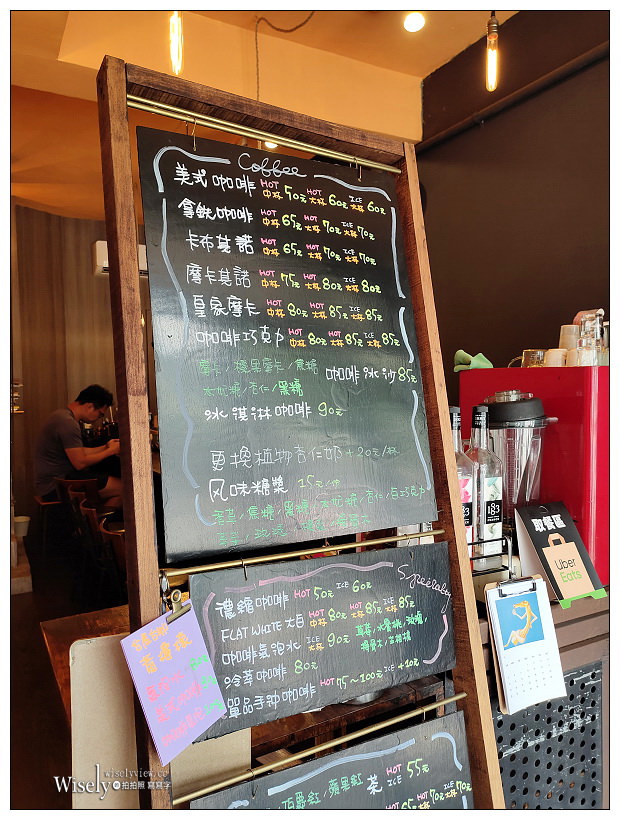 Coffee
美式咖啡 HOT 中杯 50元 HOT 大杯 60元 ICE 大杯 60元
拿鐵咖啡 HOT 中杯 65元 HOT 大杯 70元 ICE 大杯 70元
卡布其諾 HOT 中杯 65元 HOT 大杯 70元 ICE 大杯 70元
摩卡其諾 HOT 中杯 75元 HOT 大杯 80元 ICE 大杯 80元
皇家摩卡 HOT 中杯 80元 HOT 大杯 85元 ICE 大杯 85元
咖啡巧克力 HOT 中杯 80元 HOT 大杯 85元 ICE 大杯 85元
摩卡/榛果摩卡/焦糖
太妃糖/杏仁/黑糖
咖啡冰沙 85元
冰淇淋咖啡 90元
更換植物杏仁奶+20元/杯
风味糖漿 15元/份
香草/焦糖/黑糖/太妃糖/杏仁/白巧克力
Specialty
濃縮咖啡 HOT 50元 ICE 60元
FLAT WHITE 大白 HOT 中杯 80元 HOT 大杯 85元 ICE 大杯 85元
咖啡氣泡水 ICE 大杯 90元
冷萃咖啡 80元
單品手沖咖啡 HOT 75~100元 ICE +10元
茶 HOT 55元
ICE
伯爵紅/蘋果紅
取餐區
Uber
Eats
183
183
Wisely wiselyview.cc
拍拍照 寫寫字